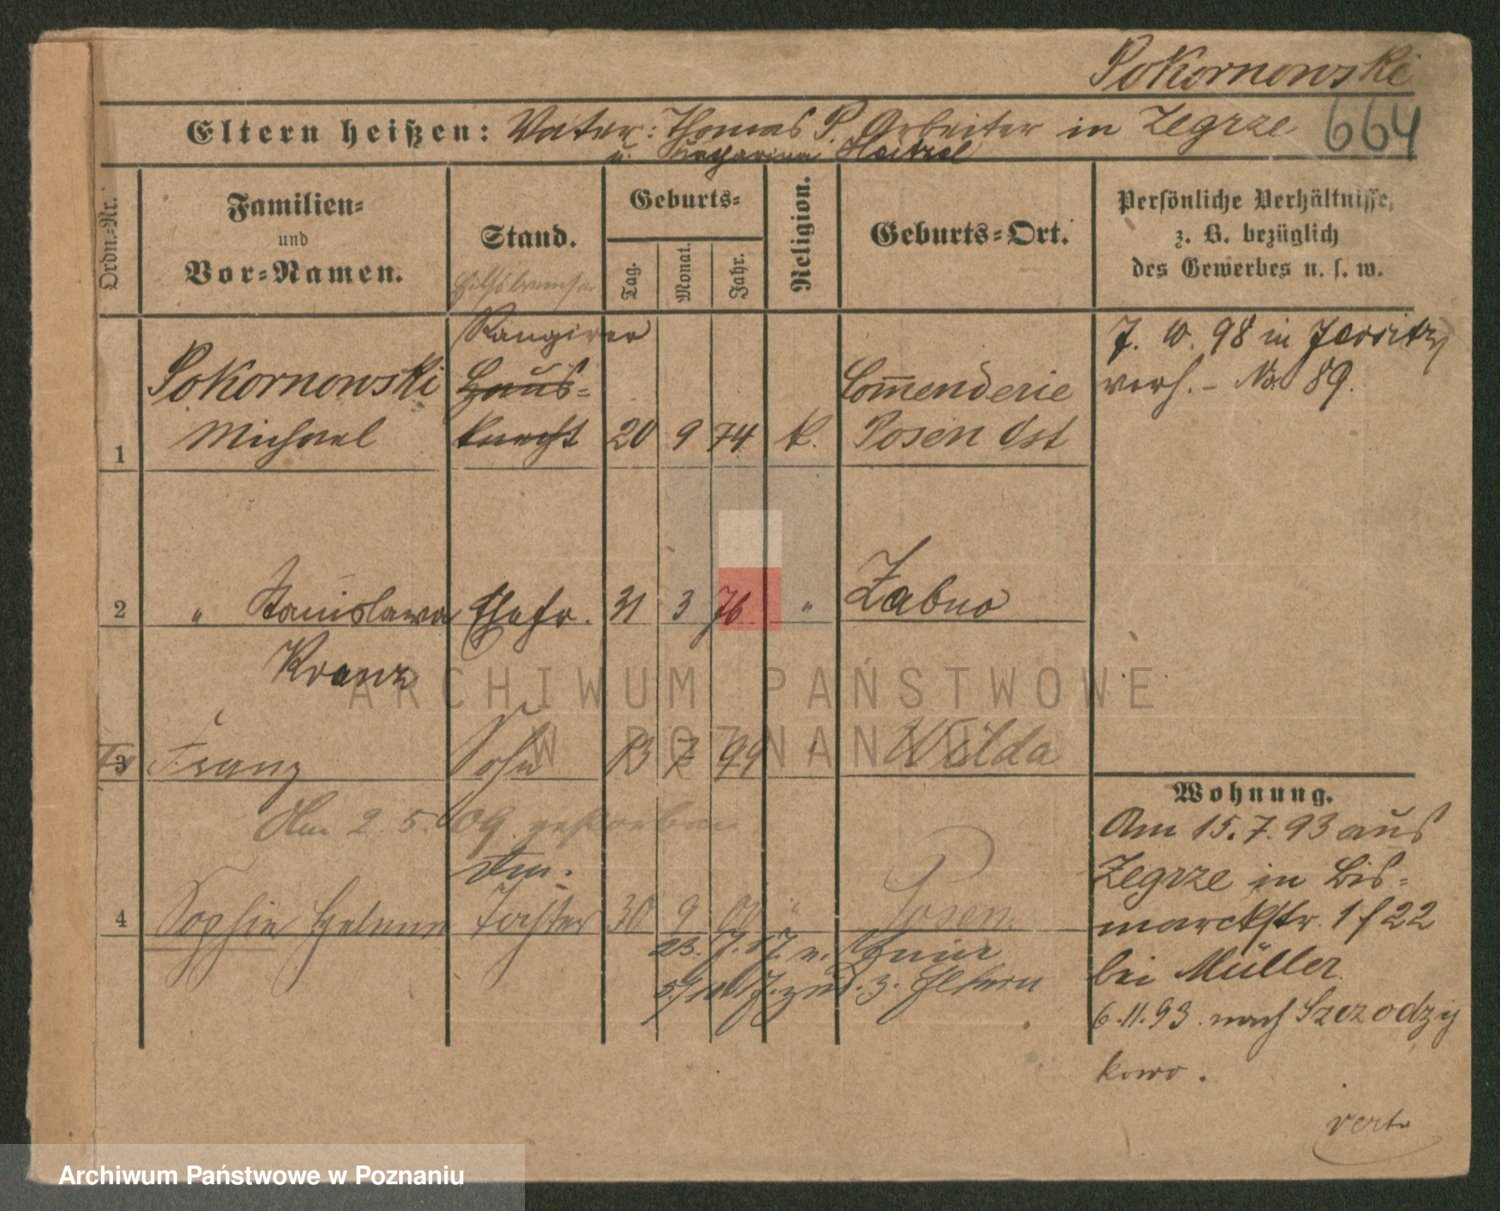 Pokornowski
Eltern heißen: Vater: Thomas P. Arbeiter in Zegrze 664
u. Katharina
Ordn.-Nr.
Familien-
und
Vor-Namen.
Stand.
Geburts-
Tag.
Monat.
Jahr.
Religion.
Geburts-Ort.
Persönliche Verhältnisse,
z. B. bezüglich
des Gewerbes u. s. w.
Rangirer
1 Pokornowski Haus- Com̄enderie
Michael knecht 20 9 74 k. Posen Ost
J. 98 in Jersitz
verh. - No 89.
2 " Stanislawa Ehefr. 31 3 76 " Zabno
Kranz
3 Franz Sohn 13 7 99 " Wilda
Am 2. 5. 09 gestorben
4 Sophie Helena Tochter 30 9 00 " Posen.
z. Eltern
Wohnung.
Am 15.7.93 aus
Zegrze in Bis-
marckstr. 1 f 22
bei Müller.
6.11.93. nach Szczodrzy
kowo.
verte
ARCHIWUM PAŃSTWOWE
W POZNANIU
Archiwum Państwowe w Poznaniu